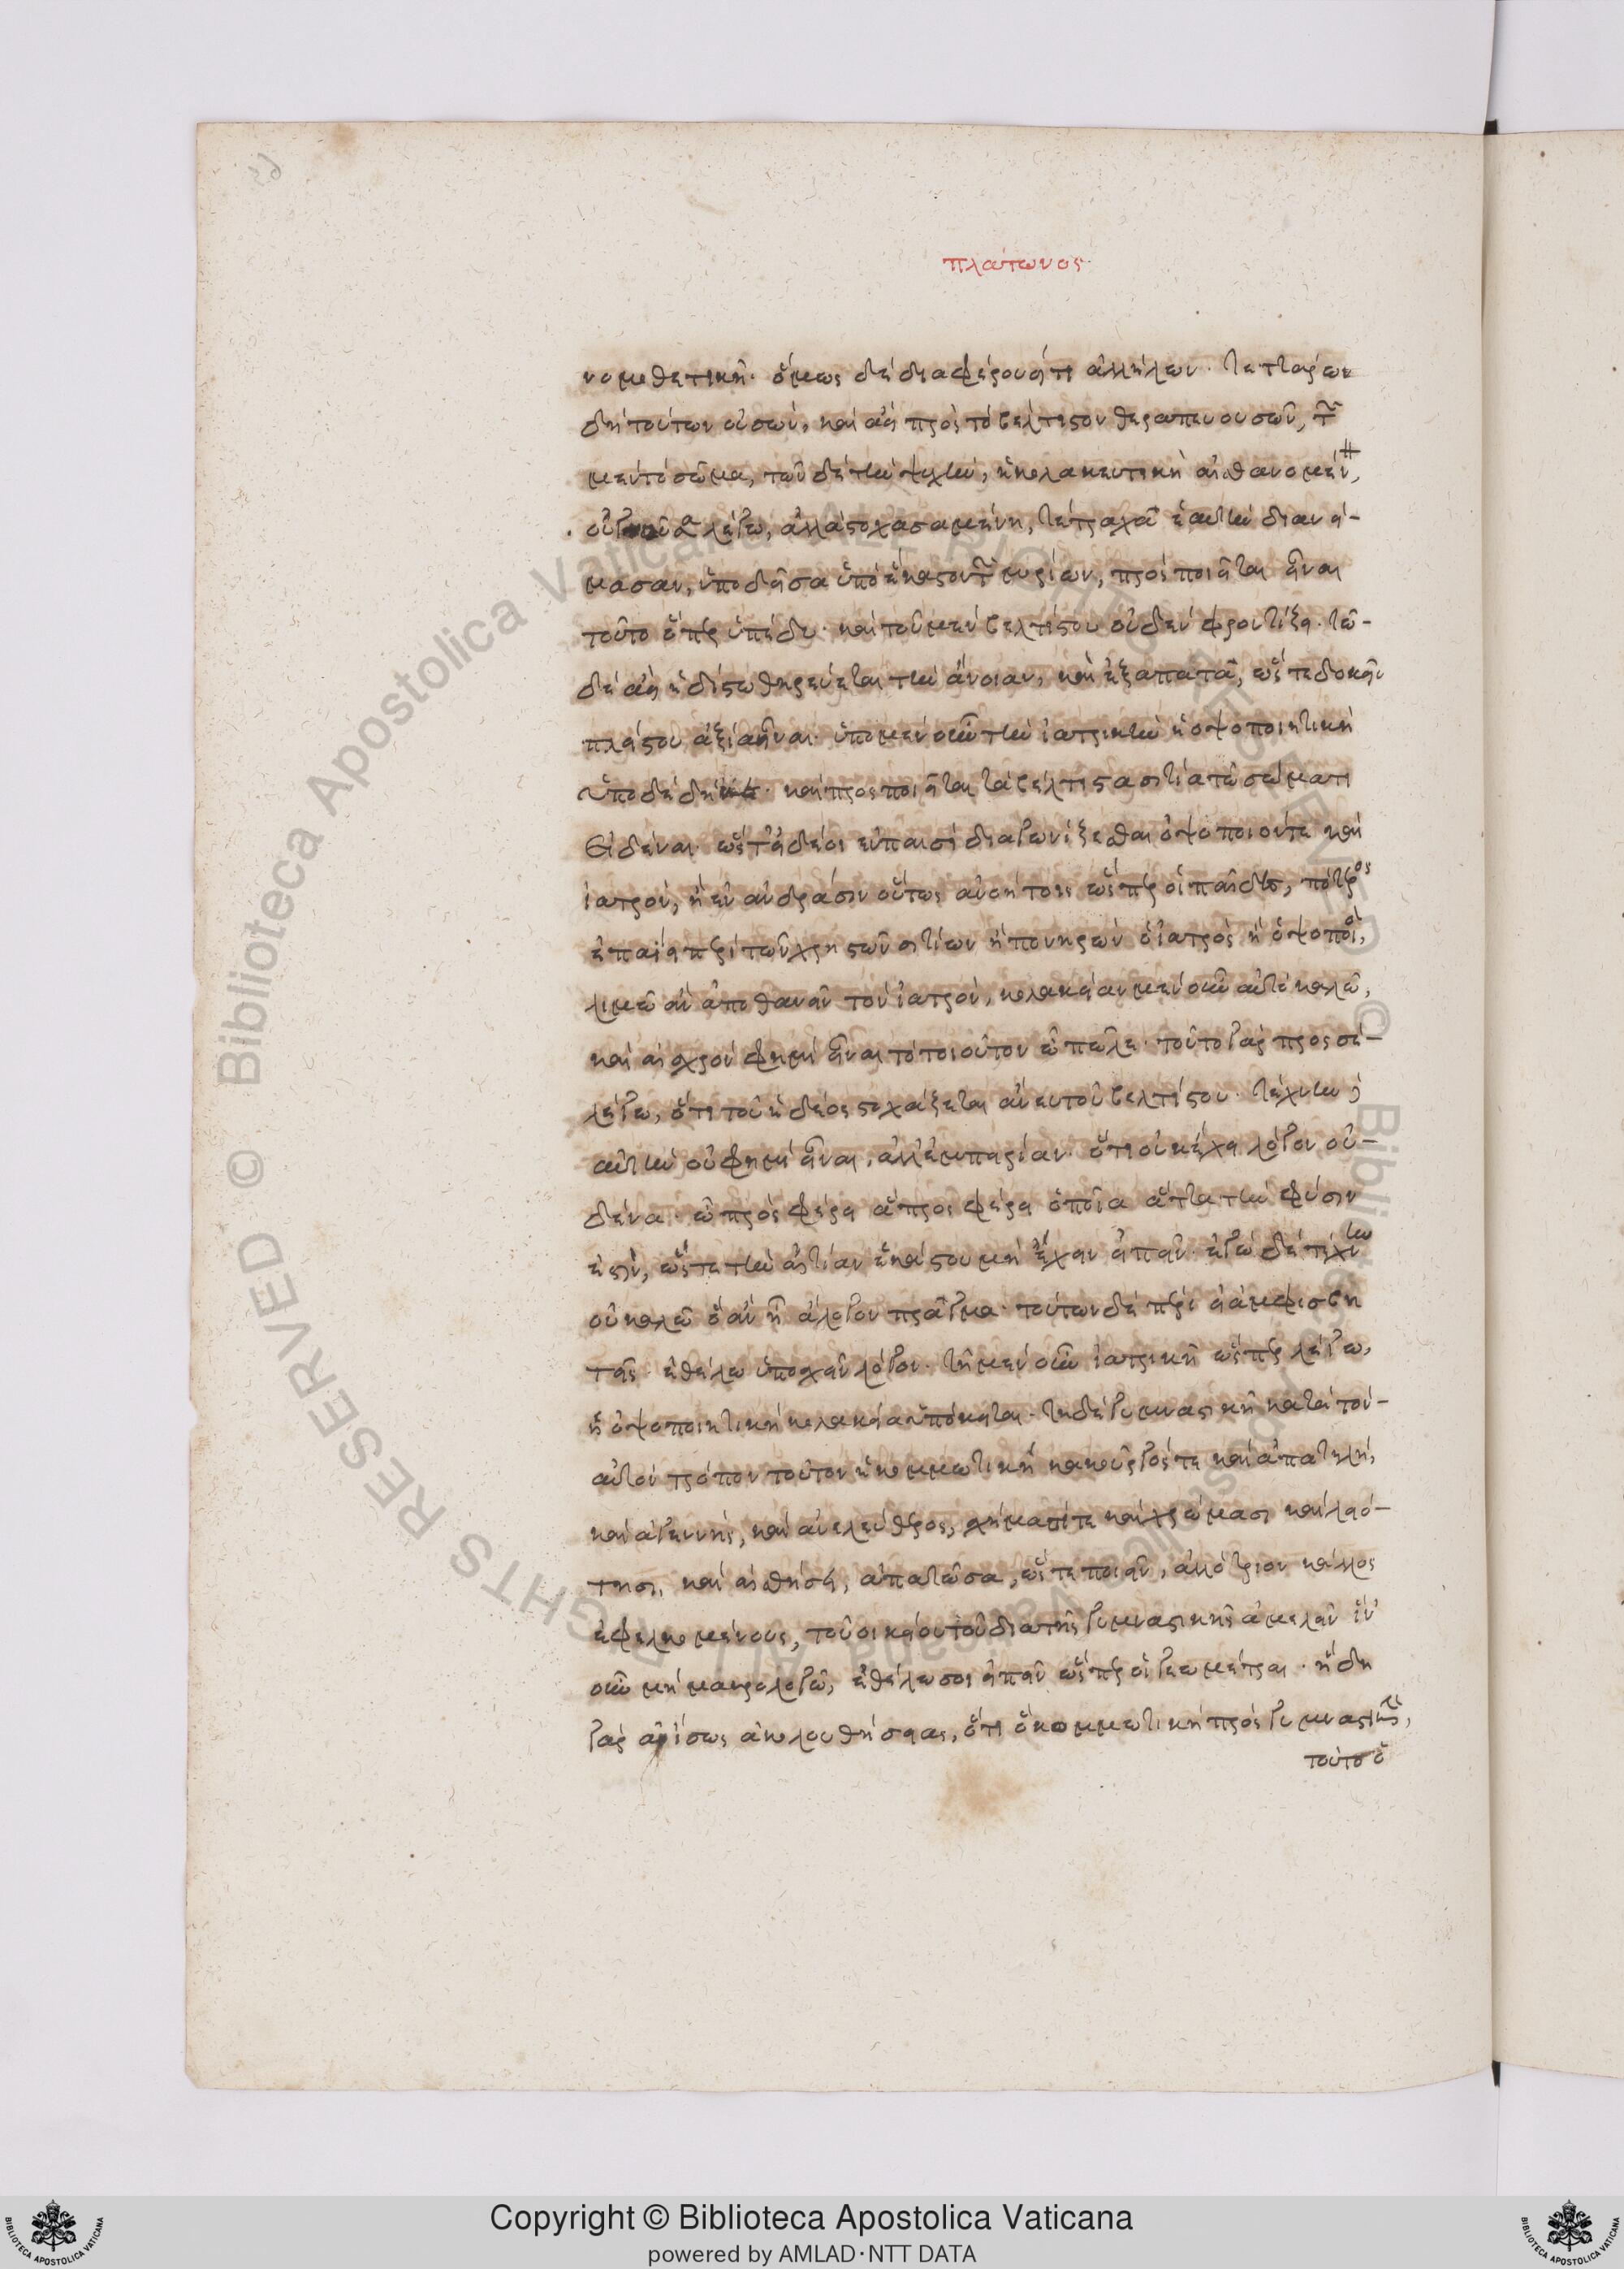 πλάτωνος
νομοθετικῆ. ὅμως δὲ διαφέρουσί τι ἀλλήλων. τεττάρων
δὴ τούτων οὐσῶν, καὶ ἀεὶ πρὸς τὸ βέλτιστον θεραπευουσῶν, τῶν
μὲν τὸ σῶμα, τῶν δὲ τὴν ψυχὴν, ἡ κολακευτικὴ αἰσθανομένη,
οὐ γνοῦσα λέγω, ἀλλὰ στοχασαμένη, τέτραχα ἑαυτὴν διανεί-
μασαν, ὑποδῦσα ὑπὸ ἕκαστον τῶν μορίων, προσποιεῖται εἶναι
τοῦτο ὅπερ ὑπέδυ. καὶ τοῦ μὲν βελτίστου οὐδὲν φροντίζει. τῶ-
δὲ ἀεὶ ἡδίστω θηρεύεται τὴν ἄνοιαν, καὶ ἐξαπατᾶ, ὥστε δοκεῖν
πλείστου ἀξία εἶναι. ὑπὸ μὲν οὖν τὴν ἰατρικὴν ἡ ὀψοποιητικὴ
ὑποδέδυκε. καὶ προσποιεῖται τὰ βέλτιστα σιτία τῶ σώματι
εἰδέναι. ὥστ' εἰ δέοι ἐν παισὶ διαγωνίζεσθαι ὀψοποιόν τε καὶ
ἰατρὸν, ἢ ἐν ἀνδράσιν οὕτως ἀνοήτοις ὥσπερ οἱ παῖδες, πότερος
ἐπαΐει περὶ τῶν χρηστῶν σιτίων ἢ πονηρῶν ὁ ἰατρὸς ἢ ὀψοποιὸς,
λιμῶ ἂν ἀποθανεῖν τὸν ἰατρὸν, κολακείαν μὲν οὖν αὐτὸ καλῶ,
καὶ αἰσχρόν φημι εἶναι τὸ τοιοῦτον ὦ πῶλε. τοῦτο γὰρ πρὸς σὲ-
λέγω, ὅτι τοῦ ἡδέος στοχάζεται ἄνευ τοῦ βελτίστου. τέχνην δὲ
αὐτὴν οὔ φημι εἶναι, ἀλλ' ἐμπειρίαν. ὅτι οὐκ ἔχει λόγον οὐ-
δένα. ὧ προσφέρει ἃ προσφέρει ὁποῖα ἄττα τὴν φύσιν
ἐστὶν, ὥστε τὴν αἰτίαν ἑκάστου μὴ ἔχειν εἰπεῖν. ἐγὼ δὲ τέχνην
οὐ καλῶ ὃ ἂν ᾖ ἄλογον πρᾶγμα. τούτων δὲ πέρι εἰ ἀμφισβη
τεῖς ἐθέλω ὑποσχεῖν λόγον. τῆ μὲν οὖν ἰατρικῆ ὥσπερ λέγω,
ἡ ὀψοποιητικὴ κολακεία ὑπόκειται. τῆ δὲ γυμναστικῆ κατὰ τὸν-
αὐτὸν τρόπον τοῦτον ἡ κομμωτικὴ κακοῦργός τε καὶ ἀπατηλὴ,
καὶ ἀγεννὴς, καὶ ἀνελεύθερος, σχήμασί τε καὶ χρώμασι καὶ λειό-
τησι, καὶ αἰσθήσει, ἀπατῶσα, ὥστε ποιεῖν, ἀλλότριον κάλλος
ἐφελκομένους, τοῦ οἰκείου τοῦ διὰ τῆς γυμναστικῆς ἀμελεῖν ἵν'
οὖν μὴ μακρολογῶ, ἐθέλω σοι εἰπεῖν ὥσπερ οἱ γεωμέτραι. ἤδη
γὰρ ἂν ἴσως ἀκολουθήσειας, ὅτι ὃ κομμωτικὴ πρὸς γυμναστικὴν,
τοῦτο ὀ